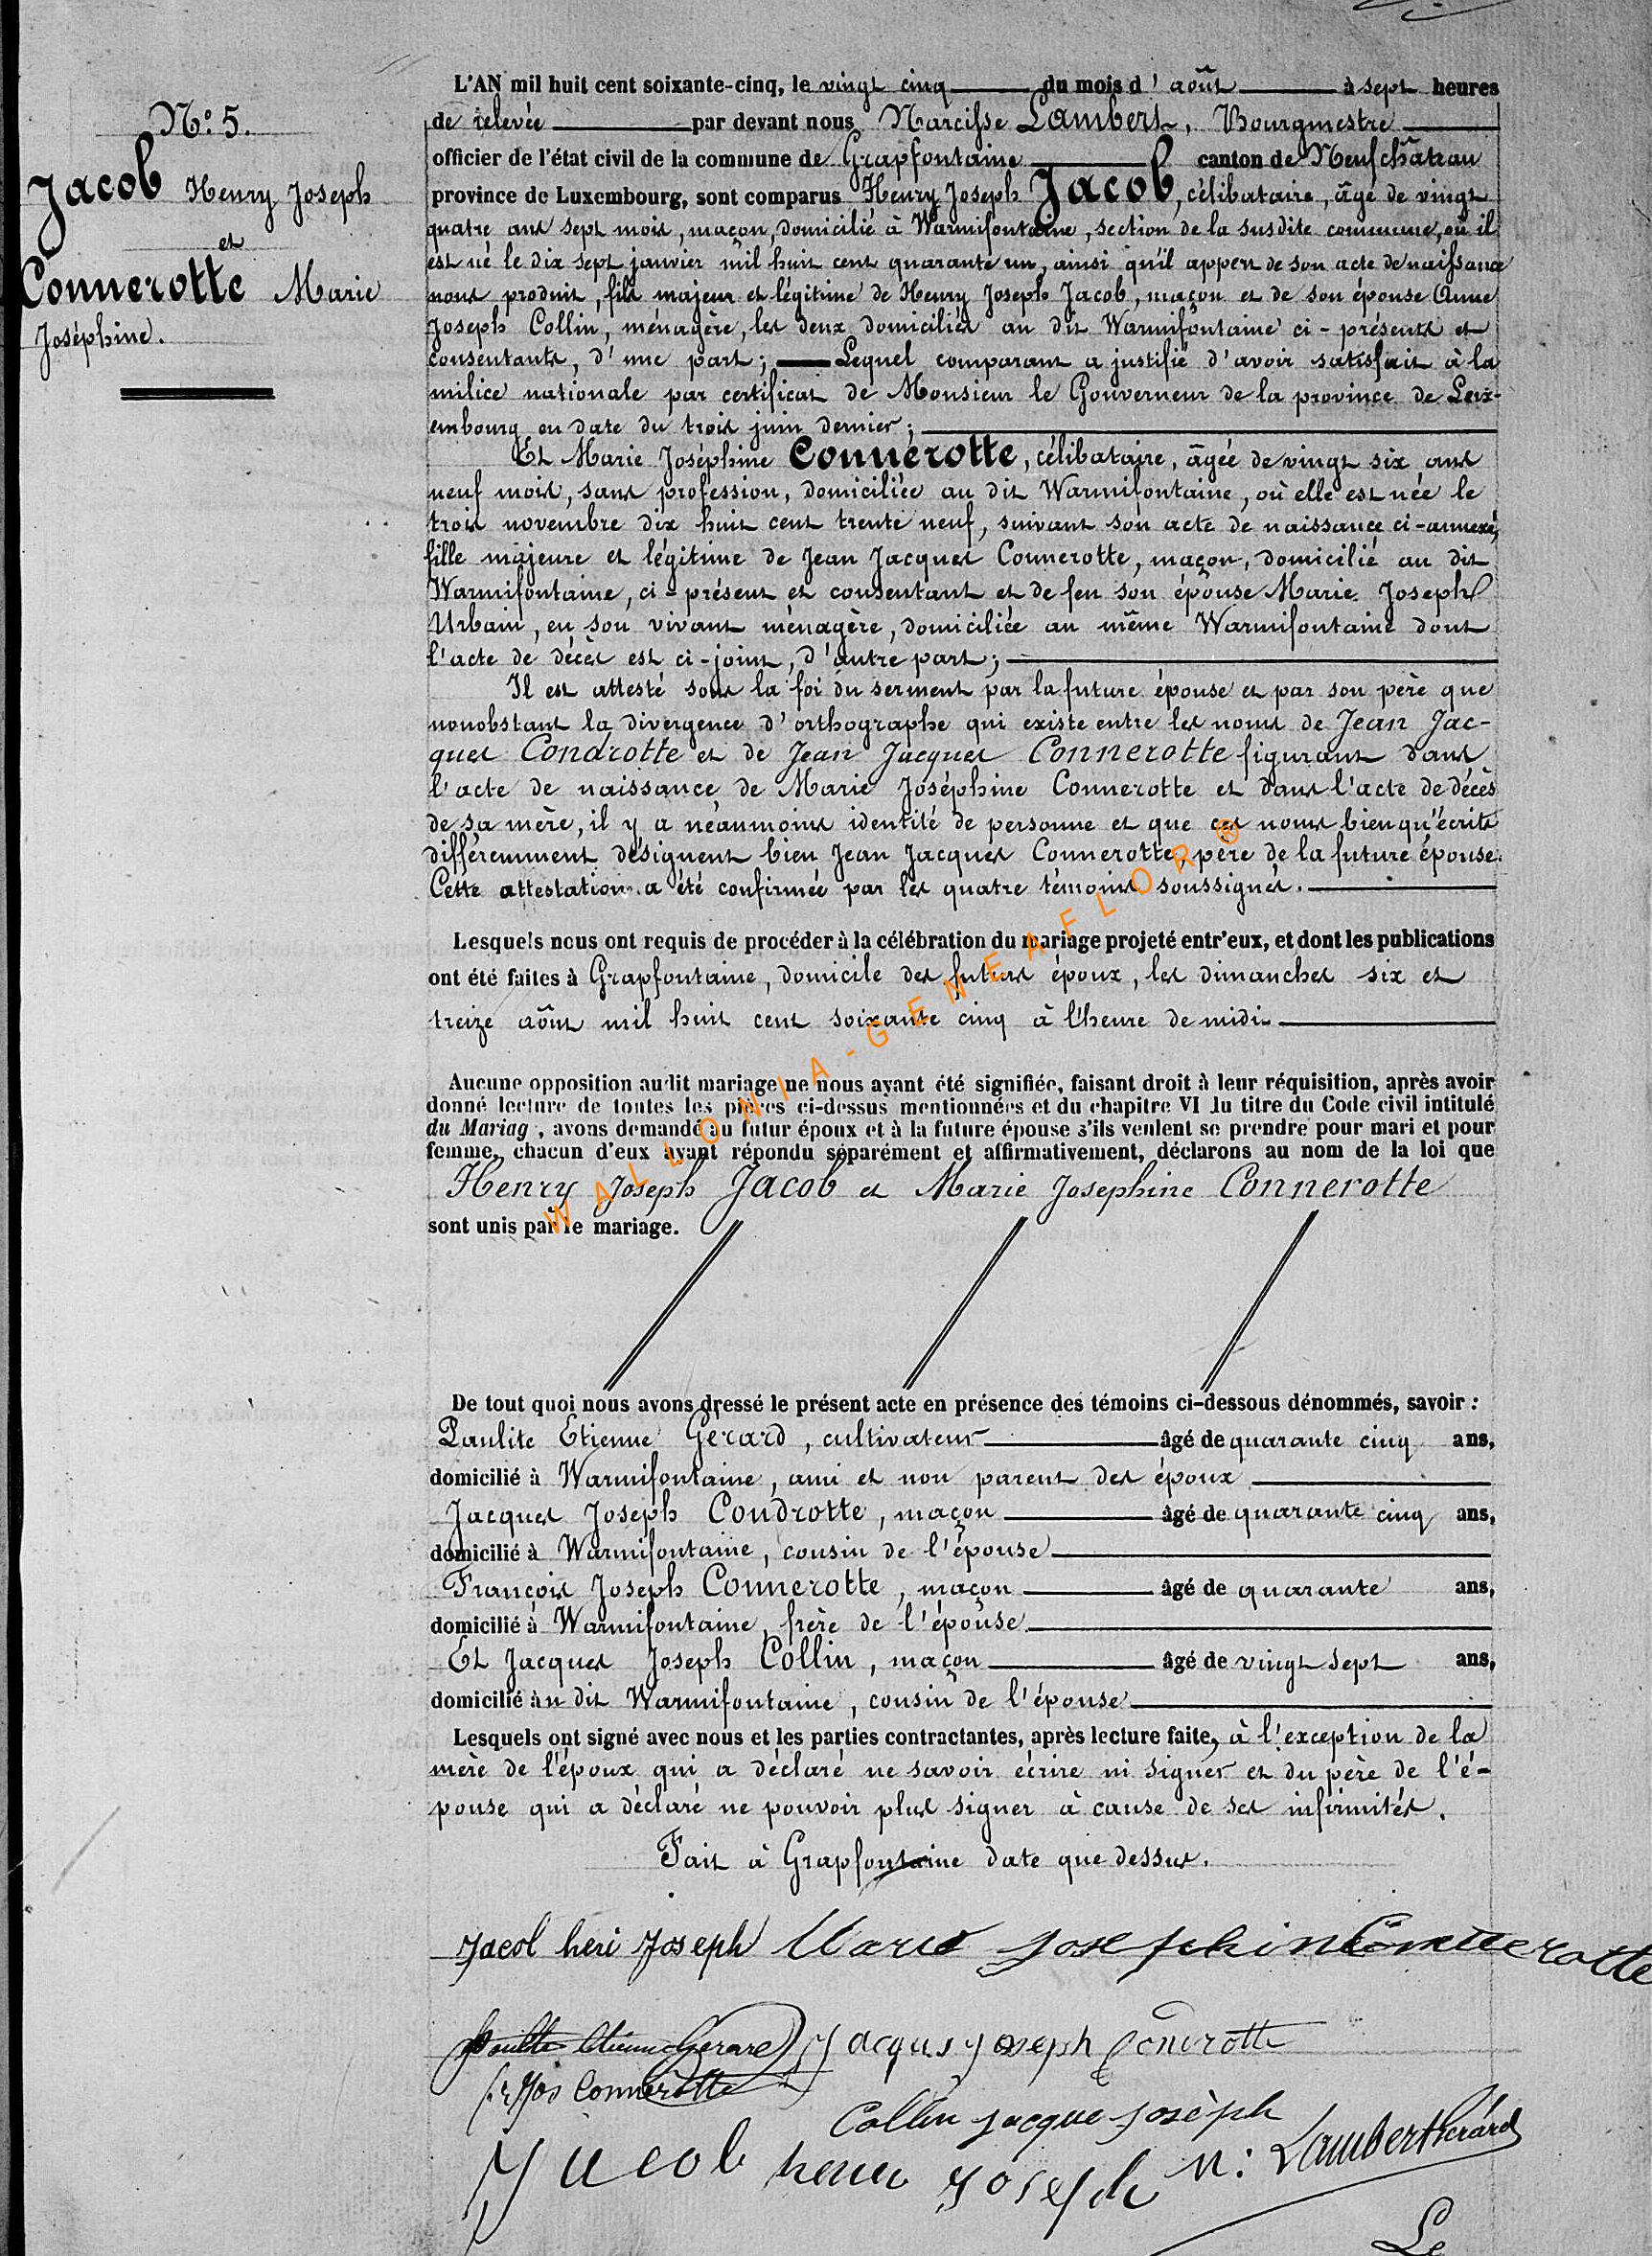 N.º 5.
Jacob Henry Joseph
et
Connerotte Marie
Joséphine.
L'AN mil huit cent soixante-cinq, le vingt cinq du mois d'août à sept heures
de relevée par devant nous Narcisse Lambert, Bourgmestre
officier de l'état civil de la commune de Grapfontaine canton de Neufchâteau
province de Luxembourg, sont comparus Henry Joseph Jacob, célibataire, âgé de vingt
quatre ans sept mois, maçon, domicilié à Warmifontaine, section de la susdite commune, où il
est né le dix sept janvier mil huit cent quarante un, ainsi qu'il appert de son acte de naissance
nous produit, fils majeur et légitime de Henry Joseph Jacob, maçon et de son épouse Anne
Joseph Collin, ménagère, les deux domiciliés au dit Warmifontaine ci-présents et
consentants, d'une part; Lequel comparant a justifié d'avoir satisfait à la
milice nationale par certificat de Monsieur le Gouverneur de la province de Lux-
embourg en date du trois juin dernier;
Et Marie Joséphine Connerotte, célibataire, âgée de vingt six ans
neuf mois, sans profession, domiciliée au dit Warmifontaine, où elle est née le
trois novembre dix huit cent trente neuf, suivant son acte de naissance ci-annexé,
fille majeure et légitime de Jean Jacques Connerotte, maçon, domicilié au dit
Warmifontaine, ci-présent et consentant et de feu son épouse Marie Joseph
Urbain, en son vivant ménagère, domiciliée au même Warmifontaine dont
l'acte de décès est ci-joint, d'autre part;
Il est attesté sous la foi du serment par la future épouse et par son père que
nonobstant la divergence d'orthographe qui existe entre les noms de Jean Jac-
ques Condrotte et de Jean Jacques Connerotte figurant dans
l'acte de naissance de Marie Joséphine Connerotte et dans l'acte de décès
de sa mère, il y a néanmoins identité de personne et que ces noms bien qu'écrits
différemment désignent bien Jean Jacques Connerotte, père de la future épouse.
Cette attestation a été confirmée par les quatre témoins soussignés.
Lesquels nous ont requis de procéder à la célébration du mariage projeté entr'eux, et dont les publications
ont été faites à Grapfontaine, domicile des futurs époux, les dimanches six et
treize août mil huit cent soixante cinq à l'heure de midi.
Aucune opposition audit mariage ne nous ayant été signifiée, faisant droit à leur réquisition, après avoir
donné lecture de toutes les pièces ci-dessus mentionnées et du chapitre VI du titre du Code civil intitulé
du Mariag, avons demandé au futur époux et à la future épouse s'ils veulent se prendre pour mari et pour
femme, chacun d'eux ayant répondu séparément et affirmativement, déclarons au nom de la loi que
Henry Joseph Jacob et Marie Josephine Connerotte
sont unis par le mariage.
WALLONIA-GENEAFLOR®
De tout quoi nous avons dressé le présent acte en présence des témoins ci-dessous dénommés, savoir :
Paulite Etienne Gérard, cultivateur âgé de quarante cinq ans,
domicilié à Warmifontaine, ami et non parent des époux
Jacques Joseph Condrotte, maçon âgé de quarante cinq ans,
domicilié à Warmifontaine, cousin de l'épouse
François Joseph Connerotte, maçon âgé de quarante ans,
domicilié à Warmifontaine, frère de l'épouse
Et Jacques Joseph Collin, maçon âgé de vingt sept ans,
domicilié àu dit Warmifontaine, cousin de l'épouse
Lesquels ont signé avec nous et les parties contractantes, après lecture faite, à l'exception de la
mère de l'époux qui a déclaré ne savoir écrire ni signer et du père de l'é-
pouse qui a déclaré ne pouvoir plus signer à cause de ses infirmités.
Fait à Grapfontaine date que dessus.
Jacob heri Joseph Marie josephine Connerotte
Paulite Etienne Gerard Jacqus joseph Condrotte
fr Jos Connerotte
Collin jacque joseph
Jacob henri joseph N: Lambert Gérard
Le